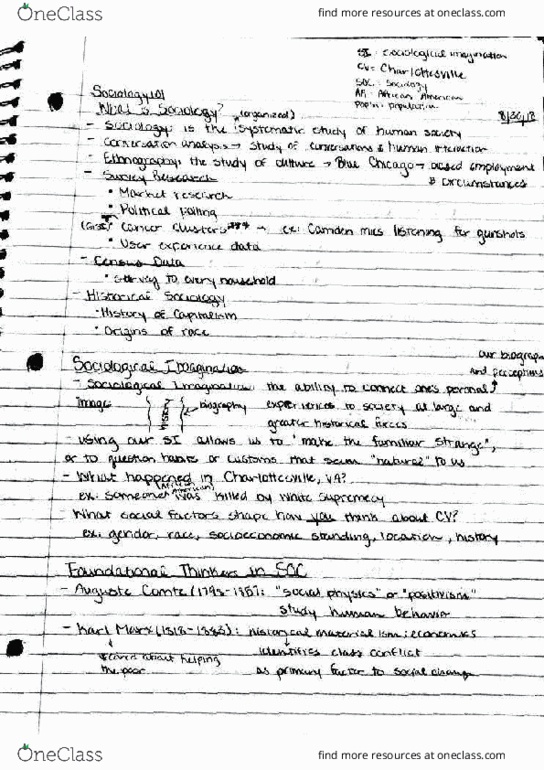 OneClass
find more resources at oneclass.com
SI: sociological imagination
CV: Charlottesville
SOC: Sociology
AA: African American
Pop'n: population
8/30/18
Sociology 101
What is Sociology? (organized)
- Sociology: is the systematic study of human society
- Conversation analysis → study of conversations & human interaction
- Ethnography: the study of culture → Blue Chicago → based employment & circumstances
- Survey Research
• Market research
• Political Polling
• Cancer Clusters → ex: Camden mics listening for gunshots
• User experience data
- Census Data
• survey to every household
- Historical Sociology
• History of Capitalism
• Origins of race
Sociological Imagination
our biography and perceptions
- Sociological Imagination: the ability to connect one's personal
Image: History biography experiences to society at large and
greater historical forces
- using our SI allows us to "make the familiar strange",
or to question habits or customs that seem "natural" to us
- What happened in Charlottesville, VA?
ex: someone (African American) was killed by White Supremacy
- What social factors shape how you think about CV?
ex: gender, race, socioeconomic standing, location, history
Foundational Thinkers in SOC
- Auguste Comte (1798-1857): "social physics" or "positivism"
study human behavior
- Karl Marx (1818-1883): historical materialism: economics
cared about helping the poor
identifies class conflict
as primary factor to social change
OneClass
find more resources at oneclass.com